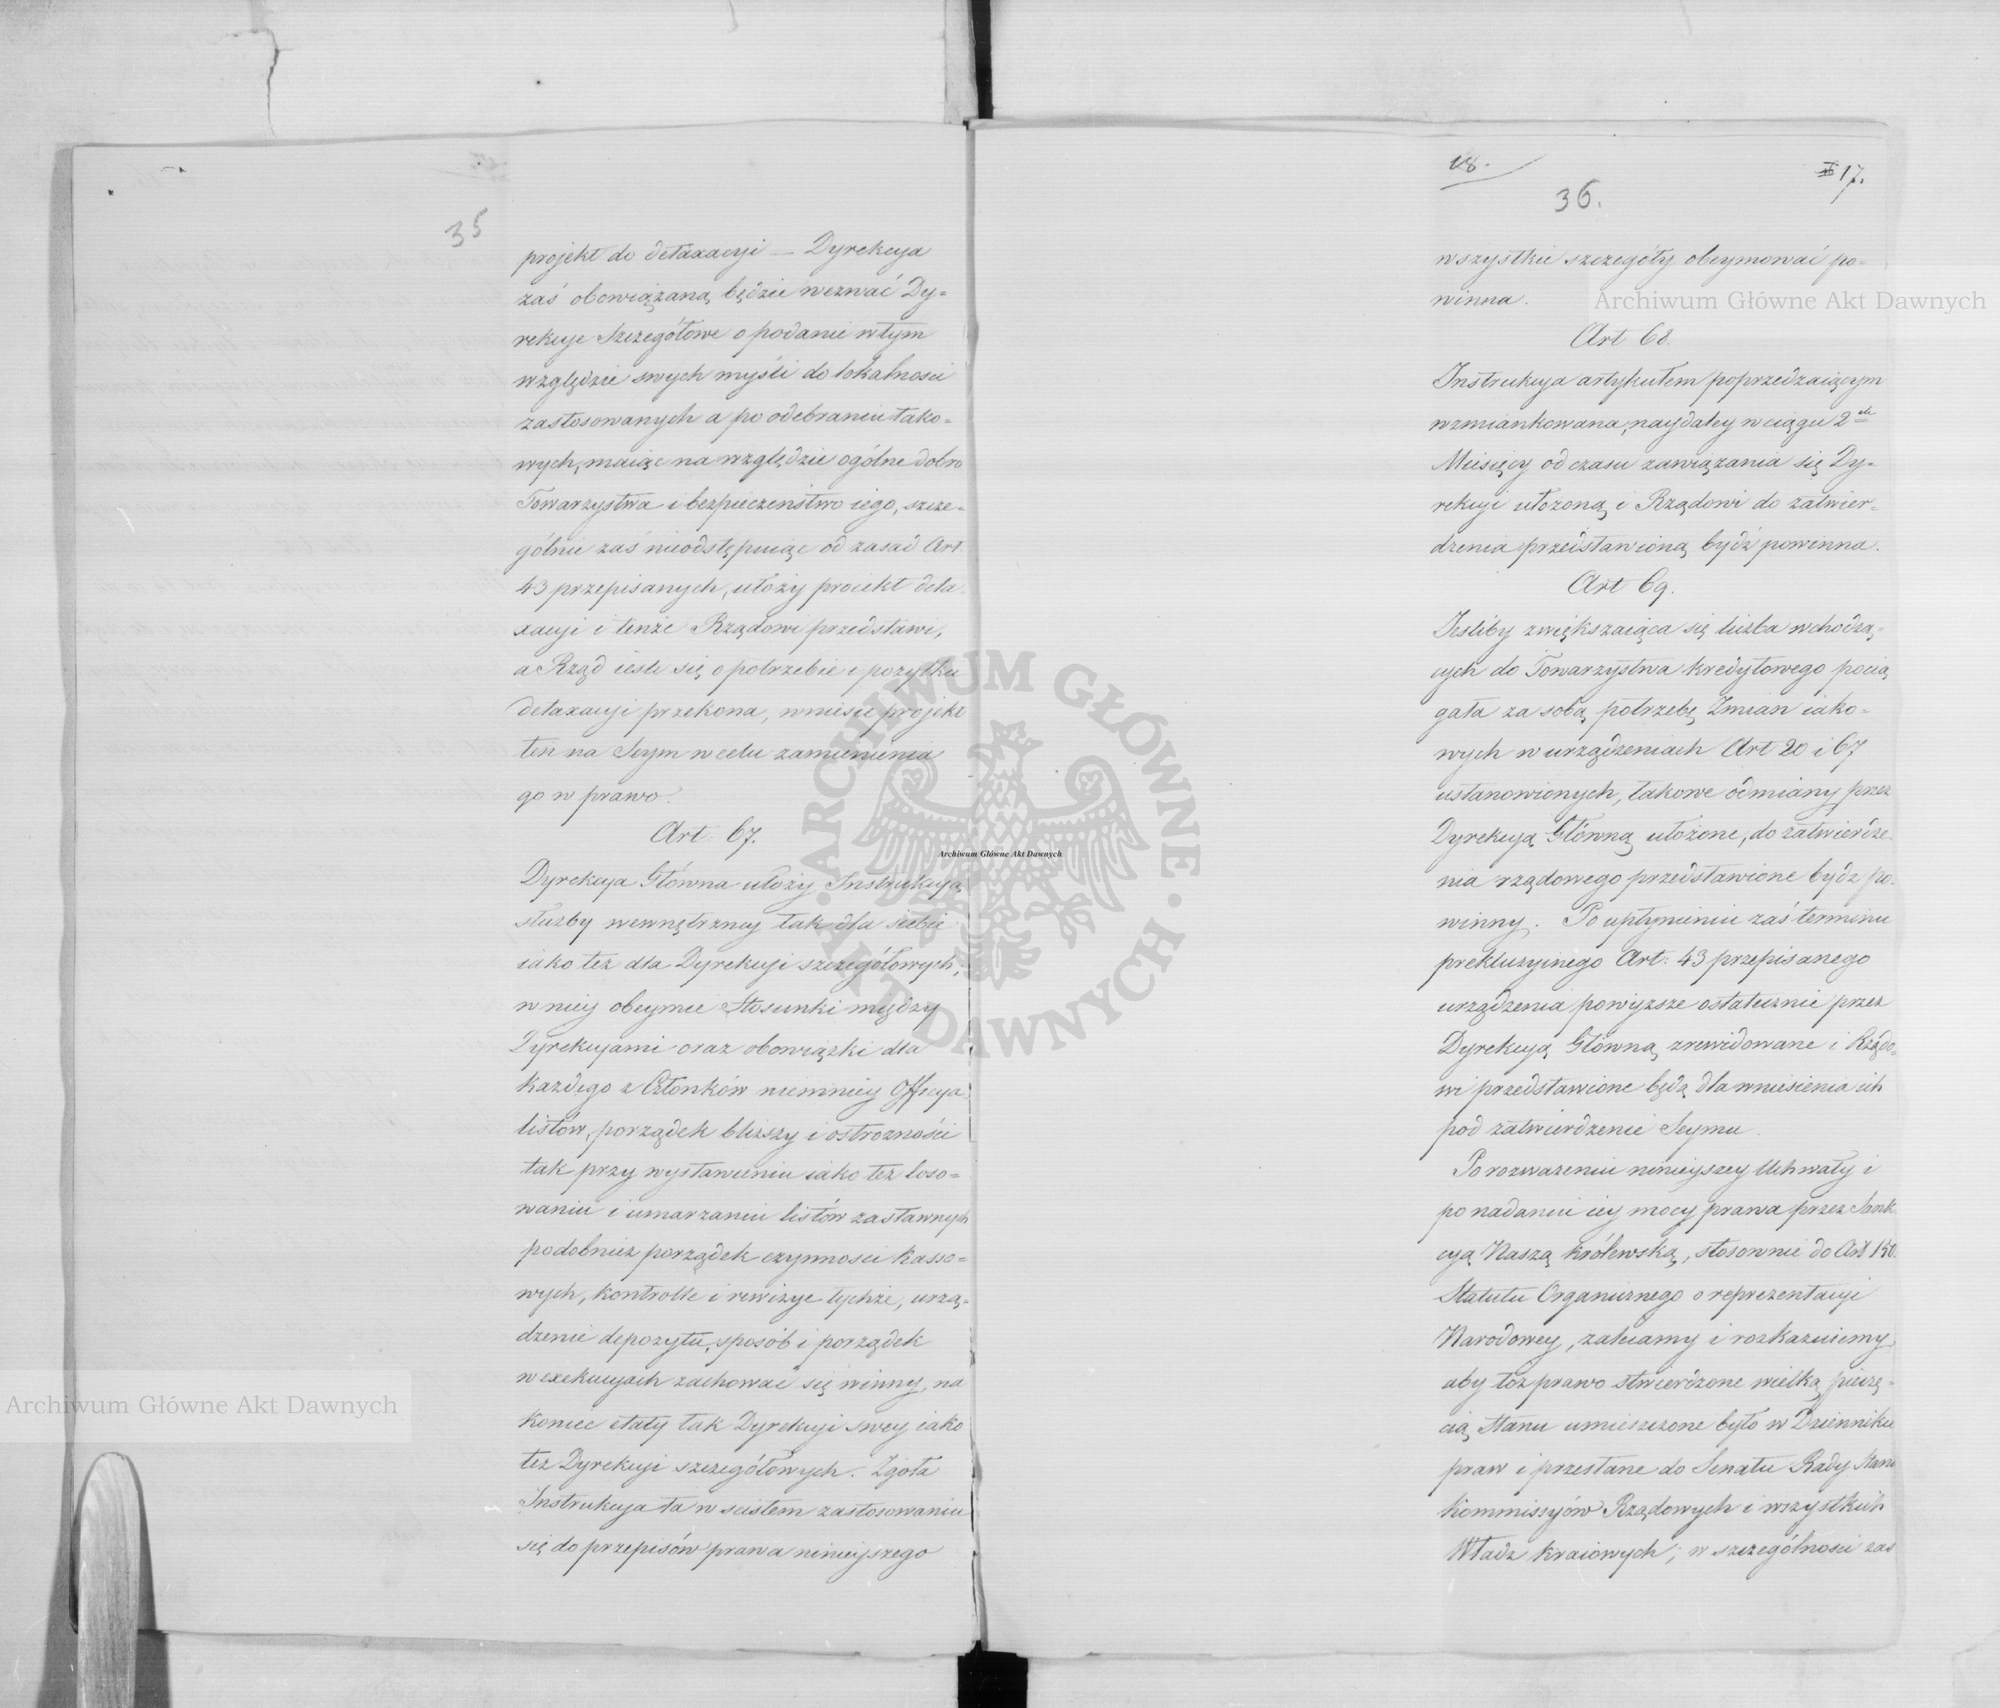 35
projekt do detaxacyi — Dyrekcya
zaś obowiązaną będzie wezwać Dy=
rekcye Szczegółowe o podanie w tym
względzie swych myśli do lokalnosci
zastosowanych a po odebraniu tako=
wych, maiąc na względzie ogólne dobro
Towarzystwa i bezpieczeństwo iego, szcze=
gólnie zaś nieodstępuiąc od zasad Art
43 przepisanych, ułoży proiekt deta
xacyi i tenże Rządowi przedstawi,
a Rząd iesli się o potrzebie i pożytku
detaxacyi przekona, wniesie projekt
ten na Seym w celu zamienienia
go w prawo.
Art. 67.
Dyrekcya Główna ułoży Instrukcyą
służby wewnętrzney tak dla siebie
iako też dla Dyrekcyi szczegółowych;
w niey obeymie Stosunki między
Dyrekcyami oraz obowiązki dla
każdego z Członków niemniey Officya=
listów, porządek bliższy i ostrożności
tak przy wystawieniu iako też loso=
waniu i umarzaniu listów zastawnych
podobnież porządek czynnosci kasso=
wych, kontrolle i rewizye tychże, urzą=
dzenie depozytu, sposób i porządek
w exekucyach zachować się winny, na
koniec etaty tak Dyrekcyi swey iako
też Dyrekcyi szczegółowych. Zgoła
Instrukcya ta w scisłem zastosowaniu
się do przepisów prawa ninieyszego
18.
36.
17.
wszystkie szczegóły obeymować po=
winna.
Art 68.
Instrukcya artykułem poprzedzaiącym
wzmiankowana, naydaley w ciągu 2ch
Miesięcy od czasu zawiązania się Dy=
rekcyi ułożoną i Rządowi do zatwier=
dzenia przedstawioną bydź powinna.
Art 69.
Jesliby zwiększaiąca się liczba wchodzą=
cych do Towarzystwa kredytowego pocią
gała za sobą potrzebę Zmian iako=
wych w urządzeniach Art 20 i 67
ustanowionych, takowe odmiany przez
Dyrekcyą Główną ułożone, do zatwierdze
nia rządowego przedstawione bydz po=
winny. Po upłynieniu zaś terminu
prekluzyinego Art: 43 przepisanego
urządzenia powyższe ostatecznie przez
Dyrekcyą Główną zrewidowane i Rządo=
wi przedstawione będą dla wniesienia ich
pod zatwierdzenie Seymu.
Po rozważeniu ninieyszey Uchwały i
po nadaniu iey mocy prawa przez Sank
cyą Naszą królewską, stosownie do Art 150.
Statutu Organicznego o reprezentacyi
Narodowey, zalecamy i rozkazuiemy
aby toż prawo stwierdzone wielką pieczę=
cią Stanu umieszczone było w Dzienniku
praw i przesłane do Senatu Rady Stanu
Kommissyów Rządowych i wszystkich
Władz kraiowych; w szczególnosci zas
Archiwum Główne Akt Dawnych
Archiwum Główne Akt Dawnych
Archiwum Główne Akt Dawnych
ARCHIWUM GŁÓWNE AKT DAWNYCH